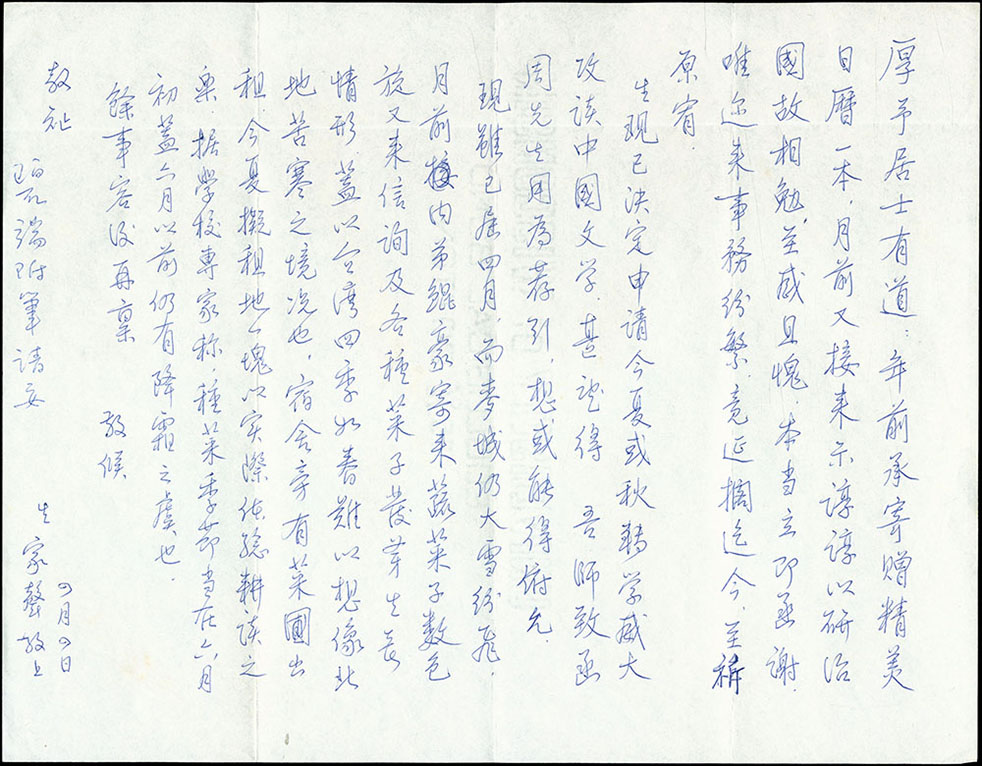 厚予居士有道：年前承寄贈精美
日曆一本，月前又接来示諄諄以研治
國故相勉，至感且愧，本当立即函謝，
唯近来事務紛繁，竟延擱迄今，至祈
原宥。
生現已決定申請今夏或秋轉学威大
攻读中國文学，甚望得 吾師致函
周先生用為荐引，想或能得俯允。
現雖已屆四月，而麥城仍大雪紛飛，
月前接内弟鯤豪寄来蔬菜子数包
旋又来信詢及各種菜子發芽生長
情形，蓋以台湾四季如春難以想像北
地苦寒之境况也，宿舍旁有菜圃出
租，今夏擬租地一塊以实際体驗耕读之
樂，据学校專家称，種菜季節当在六月
初，蓋六月以前仍有降霜之虞也。
餘事容後再稟 敬候
教祉
生 家聲敬上
四月四日
端附筆請安